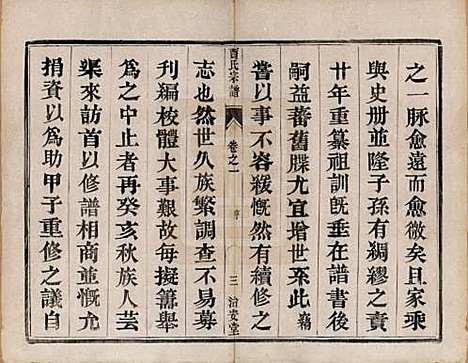 之一脈愈遠而愈微矣且家乘
與史册並隆子孫有綢繆之責
廿年重纂祖訓旣垂在譜書後
嗣益蕃舊牒尤宜增世系此竊
嘗以事不容緩慨然有續修之
賈氏宗譜
卷之一
序
三
治安堂
志也然世久族繁調查不易募
刊編校體大事艱故每擬籌舉
爲之中止者再癸亥秋族人芸
渠來訪首以修譜相商並慨允
捐資以爲助甲子重修之議自